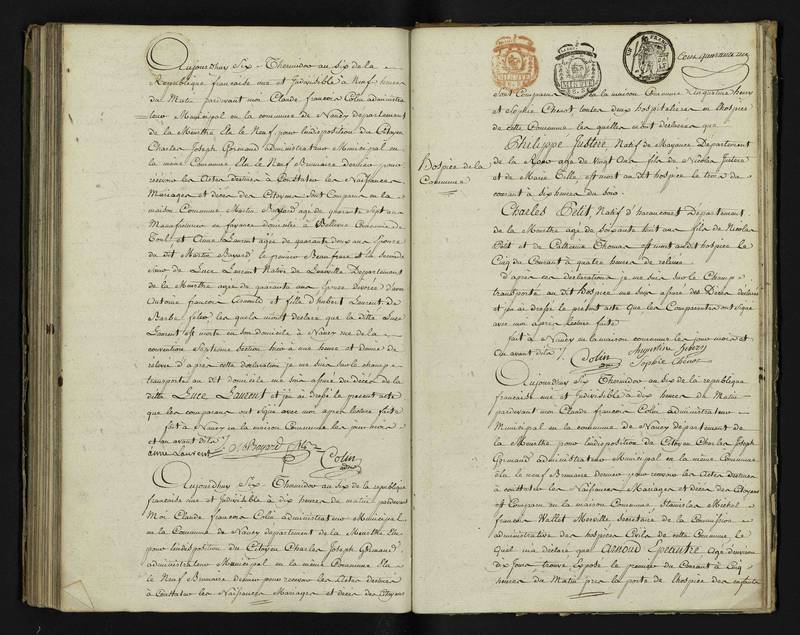 Aujourdhuy Six Thermidor an six de la
Republique francaise une et Indivisible à Neuf heures
du Matin pardevant moi Claude françois Colin administra
teur Municipal en la commune de Nancy departement
de la Meurthe Elu le Neuf pour lindisposition du Citoyen
Charles Joseph Grimaud administrateur Municipal en
la même Commune Elu le Neuf Brumaire dernier pour
recevoir les Actes destinés à Constater les Naissances,
Mariages et décès des Citoyens Sont Comparus en la
maison Commune Martin Bayard agé de quarante Sept ans
Manufacturier en fayence domicilié à Bellevue Commune de
Toul et Anne Laurent agée de quarante deux ans Epouse
du dit Martin Bayard, le premier Beaufrere et la Seconde
Sœur de Luce Laurent Native de Luneville Departement
de la Meurthe agée de quarante ans Epouse divorcée d'avec
Antoine françois Arnould et fille d'hubert Laurent De
Barbe lesquels mont declaré que la ditte Luce
Laurent est morte en son domicile à Nancy rue de la
convention Septieme Section hier à une heure et demie de
relevée d'après cette declaration je me suis sur le champ
transporté au dit domicile me suis assuré du décès de la
ditte Luce Laurent et j'en ai dressé le present acte
que les comparans ont signé avec moi après lecture faite
fait à Nancy en la maison Commune les jour mois
et an avant dits
anne Laurent M Bayard Colin
Aujourdhuy Six Thermidor an Six de la republique
françoise une et Indivisible à dix heures du matin pardevant
Moi Claude françois Colin administrateur Municipal
en la Commune de Nancy departement de la Meurthe Elu
pour lindisposition du Citoyen Charles Joseph Grimaud
administrateur Municipal en la même Commune Elu
le Neuf Brumaire dernier pour recevoir les Actes destinés
à Constater les Naissances Mariages et décès des Citoyens
Cent quarante
Sont Comparus en la maison Commune
et Sophie Chenot toutes deux hospitalieres en lhospice
de cette Commune les quelles m'ont declarées que
Phelippe Justere, Natif de Mayance Departement
de la agé de vingt ans fils de Nicolas Justere
et de Marie Cille est mort au dit hospice le trois du
courant à six heures du soir.
Hospice de la
Commune
Charles Petit Natif d'haraucourt Département
de la Meurthe agé de Soixante huit ans fils de Nicolas
Petit et de Catherine Thomas est mort au dit hospice le
Cinq du Courant à quatre heures de relevée
d'après ces declarations je me suis sur le Champ
transporté au dit hospice me suis assuré des Décès declarés
et j'en ai dressé le present acte que les Comparantes ont signé
avec moi après lecture faite
fait à Nancy en la maison commune les jour mois et
an avant dits
Colin Augustin
Sophie Chenot
Aujourdhuy Six Thermidor an Six de la republique
francaise une et Indivisible à dix heures du Matin
pardevant moi Claude françois Colin administrateur
Municipal en la commune de Nancy departement de
la Meurthe pour lindisposition du Citoyen Charles Joseph
Grimaud administrateur Municipal en la même Commune
élu le neuf Brumaire dernier pour recevoir les Actes destinés
à constater les Naissances Mariages et décès des Citoyens
est Comparu en la maison Commune Stanislas Michel
françois Vallet Merville Secretaire de la Commission
administrative des hospices Civils de cette Commune le
quel ma declaré que Arnoud Epeautre Agé d'environ
dix jours trouvé Exposé le premier du Courant à Cinq
heures du Matin près la porte de lhospice des enfants